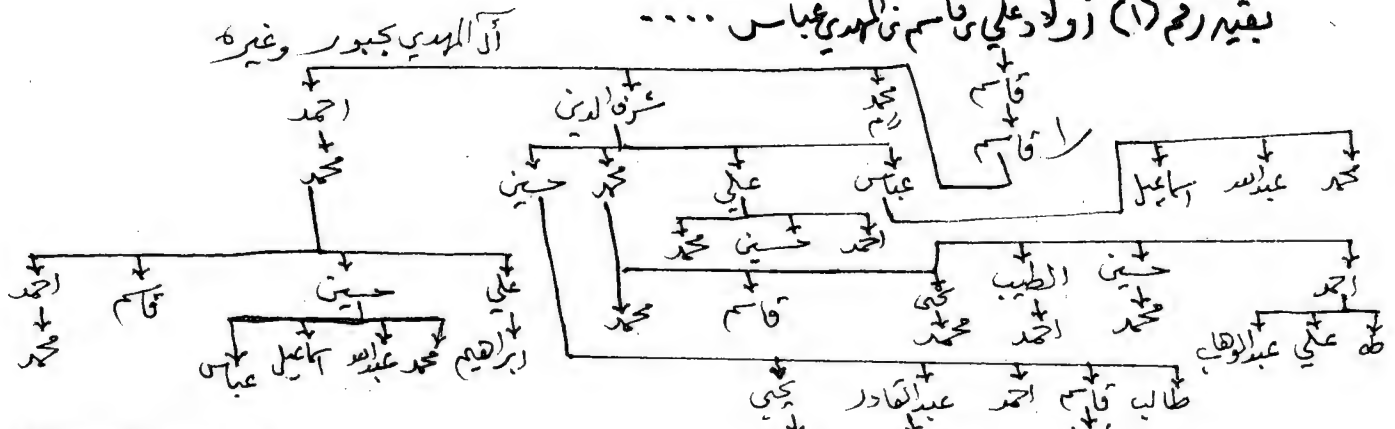 بقيه رقم (١) اولاد علي بن قاسم بن المهدي عباس ....
آل المهدي بجبور وغيره
قاسم
محمد شرف الدين احمد
قاسم
محمد
محمد عبدالله اسماعيل عباس علي محمد حسين
احمد حسين محمد
احمد حسين الطيب يحيى قاسم محمد
علي حسين قاسم احمد
طه علي عبدالوهاب محمد احمد محمد
ابراهيم محمد عبدالله اسماعيل عباس محمد
طالب قاسم احمد عبدالقادر يحيى